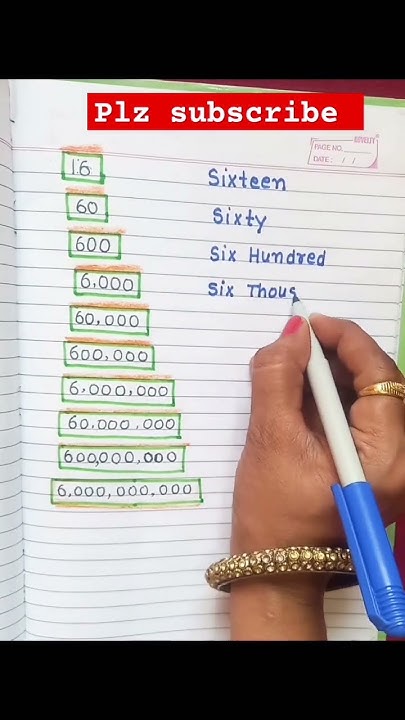 Plz subscribe
PAGE NO.
DATE: / /
16 Sixteen
60 Sixty
600 Six Hundred
6,000 Six Thous
60,000
600,000
6,000,000
60,000,000
600,000,000
6,000,000,000